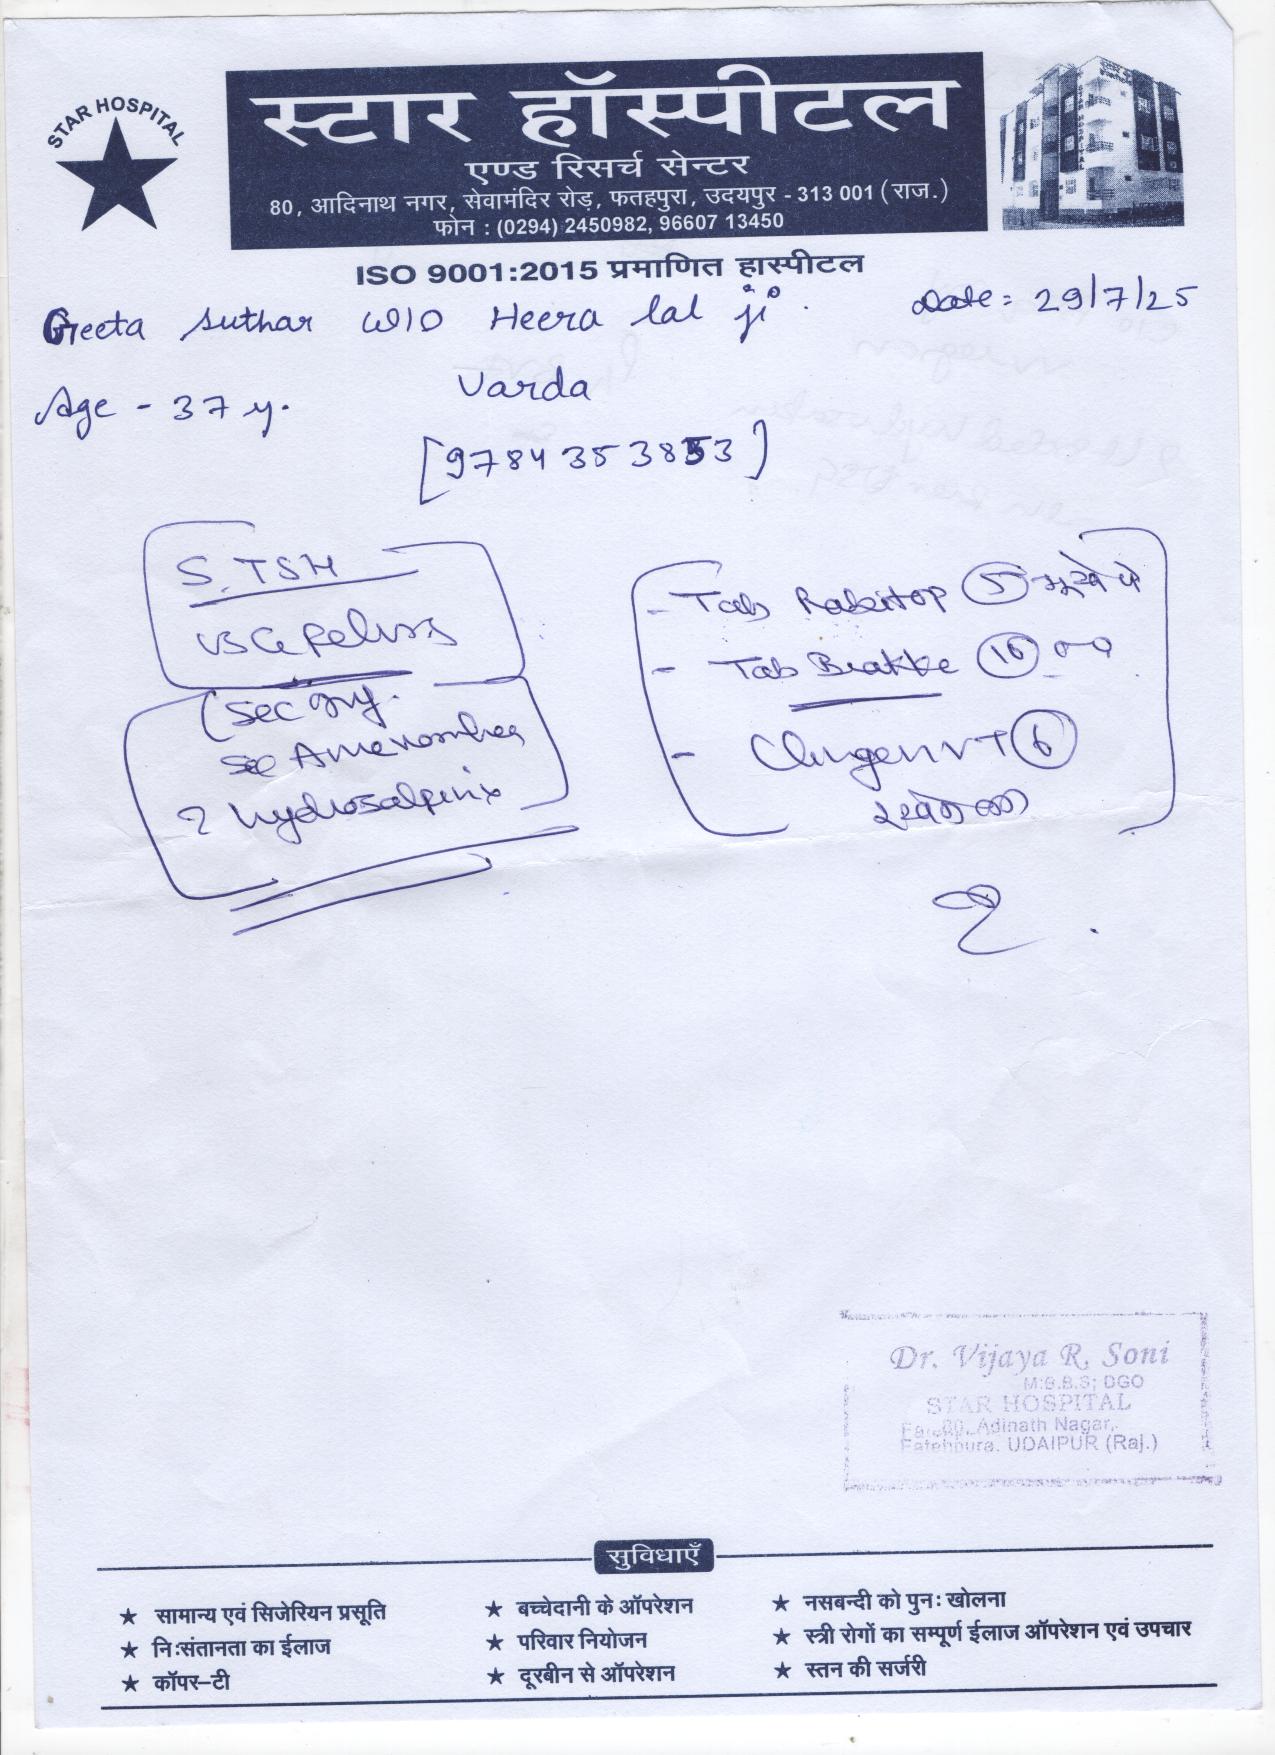 STAR HOSPITAL
स्टार हॉस्पीटल
एण्ड रिसर्च सेन्टर
80, आदिनाथ नगर, सेवामंदिर रोड़, फतहपुरा, उदयपुर - 313 001 (राज.)
फोन : (0294) 2450982, 96607 13450
ISO 9001:2015 प्रमाणित हास्पीटल
Geeta Suthar W/O Heera lal ji. Date: 29/7/25
Age - 37 y. Varda
[9784353853]
S. TSH
USG Pelvis
(Sec
Sec Amenorrhea
? hydrosalpinx
- Tab 5
- Tab 10
- 6
Dr. Vijaya R. Soni
M.B.B.S; DGO
STAR HOSPITAL
80, Adinath Nagar,
Fatehpura. UDAIPUR (Raj.)
सुविधाएँ
★ सामान्य एवं सिजेरियन प्रसूति ★ बच्चेदानी के ऑपरेशन ★ नसबन्दी को पुनः खोलना
★ निःसंतानता का ईलाज ★ परिवार नियोजन ★ स्त्री रोगों का सम्पूर्ण ईलाज ऑपरेशन एवं उपचार
★ कॉपर–टी ★ दूरबीन से ऑपरेशन ★ स्तन की सर्जरी